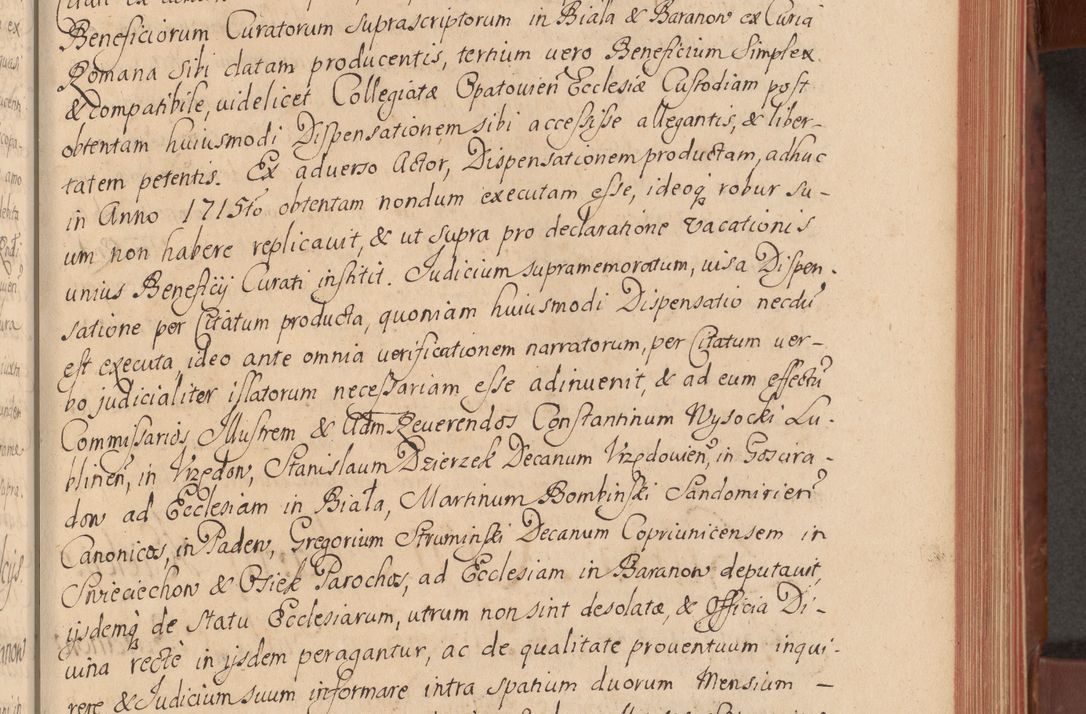 Beneficiorum Curatorum suprascriptorum in Biala & Baranow ex Curia
Romana sibi datam producentis, tertium vero Beneficium Simplex
& compatibile, videlicet Collegiatæ Opatovien Ecclesiæ Custodiam post
obtentam huiusmodi Dispensationem sibi accessisse allegantis, & liber-
tatem petentis. Ex adverso Actor, Dispensationem productam, adhuc
in Anno 1715to obtentam nondum executam esse, ideoq robur su-
um non habere replicavit, & ut supra pro declaratione vacationis
unius Beneficij Curati institit. Judicium supramemoratum, visa Dispen-
satione per Citatum producta, quoniam huiusmodi Dispensatio necdu
est executa, ideo ante omnia verificationem narratorum, per Citatum ver-
bo judicialiter illatorum necessariam esse adinvenit, & ad eum effectu
Commissarios Illustrem & Adm Reverendos Constantinum Wysocki Lu-
blinen, in Vrzędow, Stanislaum Dzierzek Decanum Vrzędovien, in Goscira-
dow ad Ecclesiam in Biała, Martinum Bombinski Sandomirien
Canonicos, in Padew, Gregorium Struminski Decanum Copriunicensem in
Swieciechow & Osiek Parochos, ad Ecclesiam in Baranow deputavit,
ijsdemq de statu Ecclesiarum, utrum non sint desolatæ, & Officia Di-
vina rectè in ijsdem peragantur, ac de qualitate proventuum inqui-
rere & Judicium suum informare intra spatium duorum Mensium –